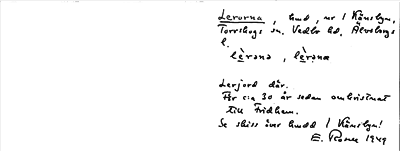 Lerorna, hmd, nr 1 Känslyn,
Torrskogs sn. Vedbo hd, Älvsborgs
l.
lè̱rənə, lè̱rənæ
Lerjord där.
För c:a 30 år sedan omkristnat
till Fridhem.
Se skiss över hmdd 1 Känslyn!
E. Rosen 1949